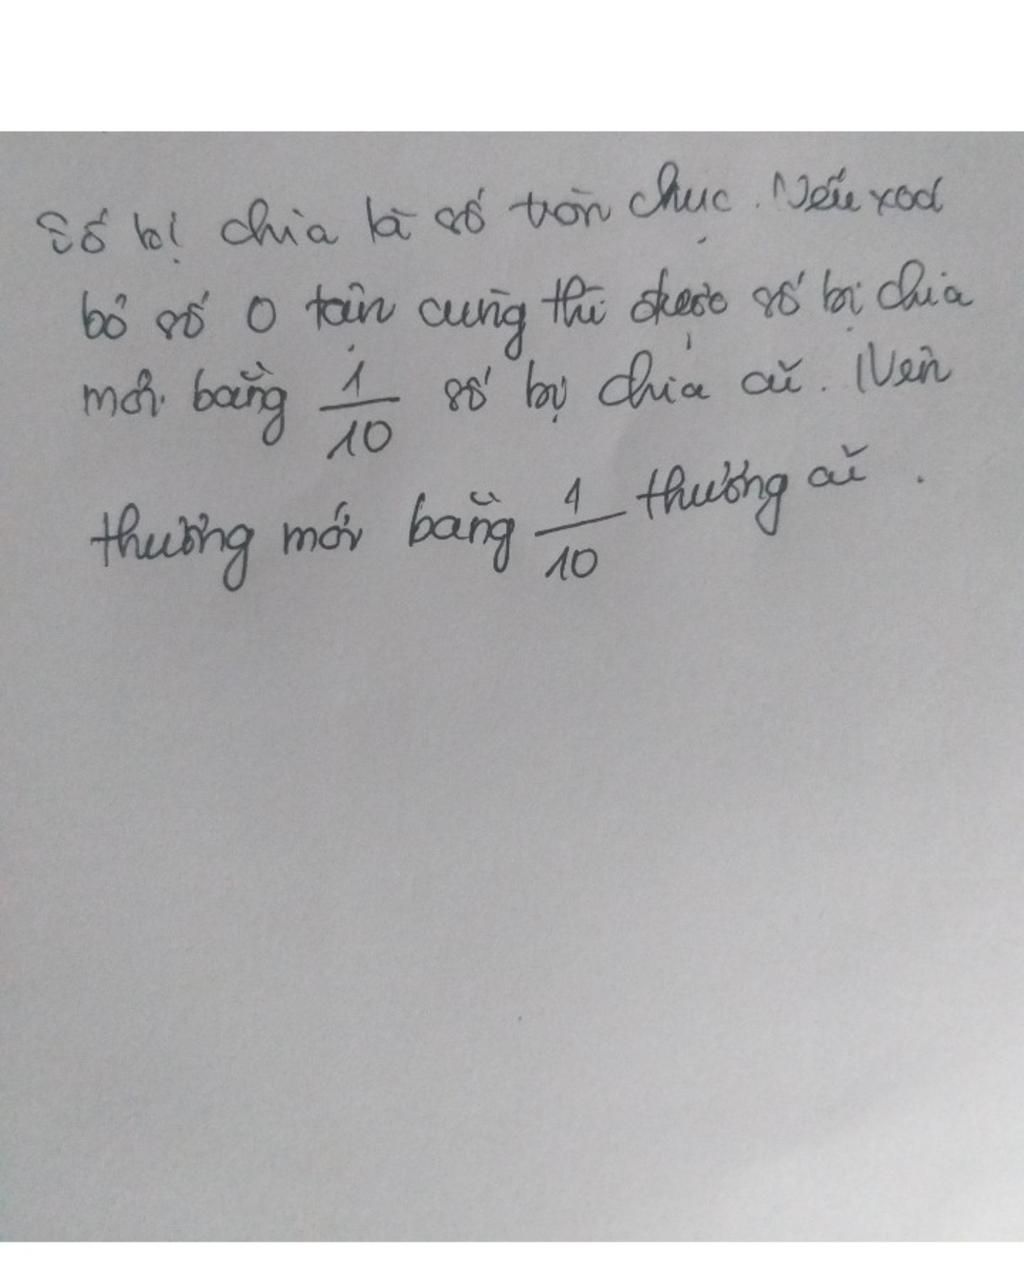 Số bị chia là số tròn chục. Nếu xoá
bỏ số 0 tận cùng thì được số bị chia
mới bằng 1/10 số bị chia cũ. Nên
thương mới bằng 1/10 thương cũ.